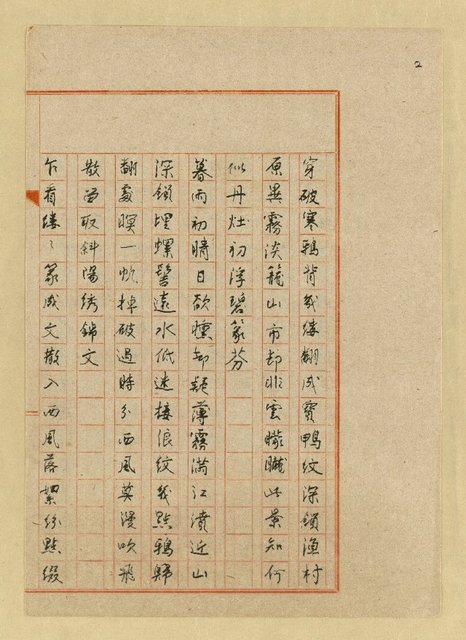 2
穿破寒鴉背幾縷翻成寶鴨紋深鎖漁村
原異霧淡籠山市却非雲朦朧此景知何
似丹灶初浮碧篆芬
暮雨初晴日欲曛却疑薄霧滿江濆近山
深鎖埋螺髻遠水低迷接浪紋幾點鴉歸
翻處暝一帆掉破過時分西風莫漫吹飛
散留取斜陽綉錦文
乍看縷々篆成文散入西風落絮紛點綴